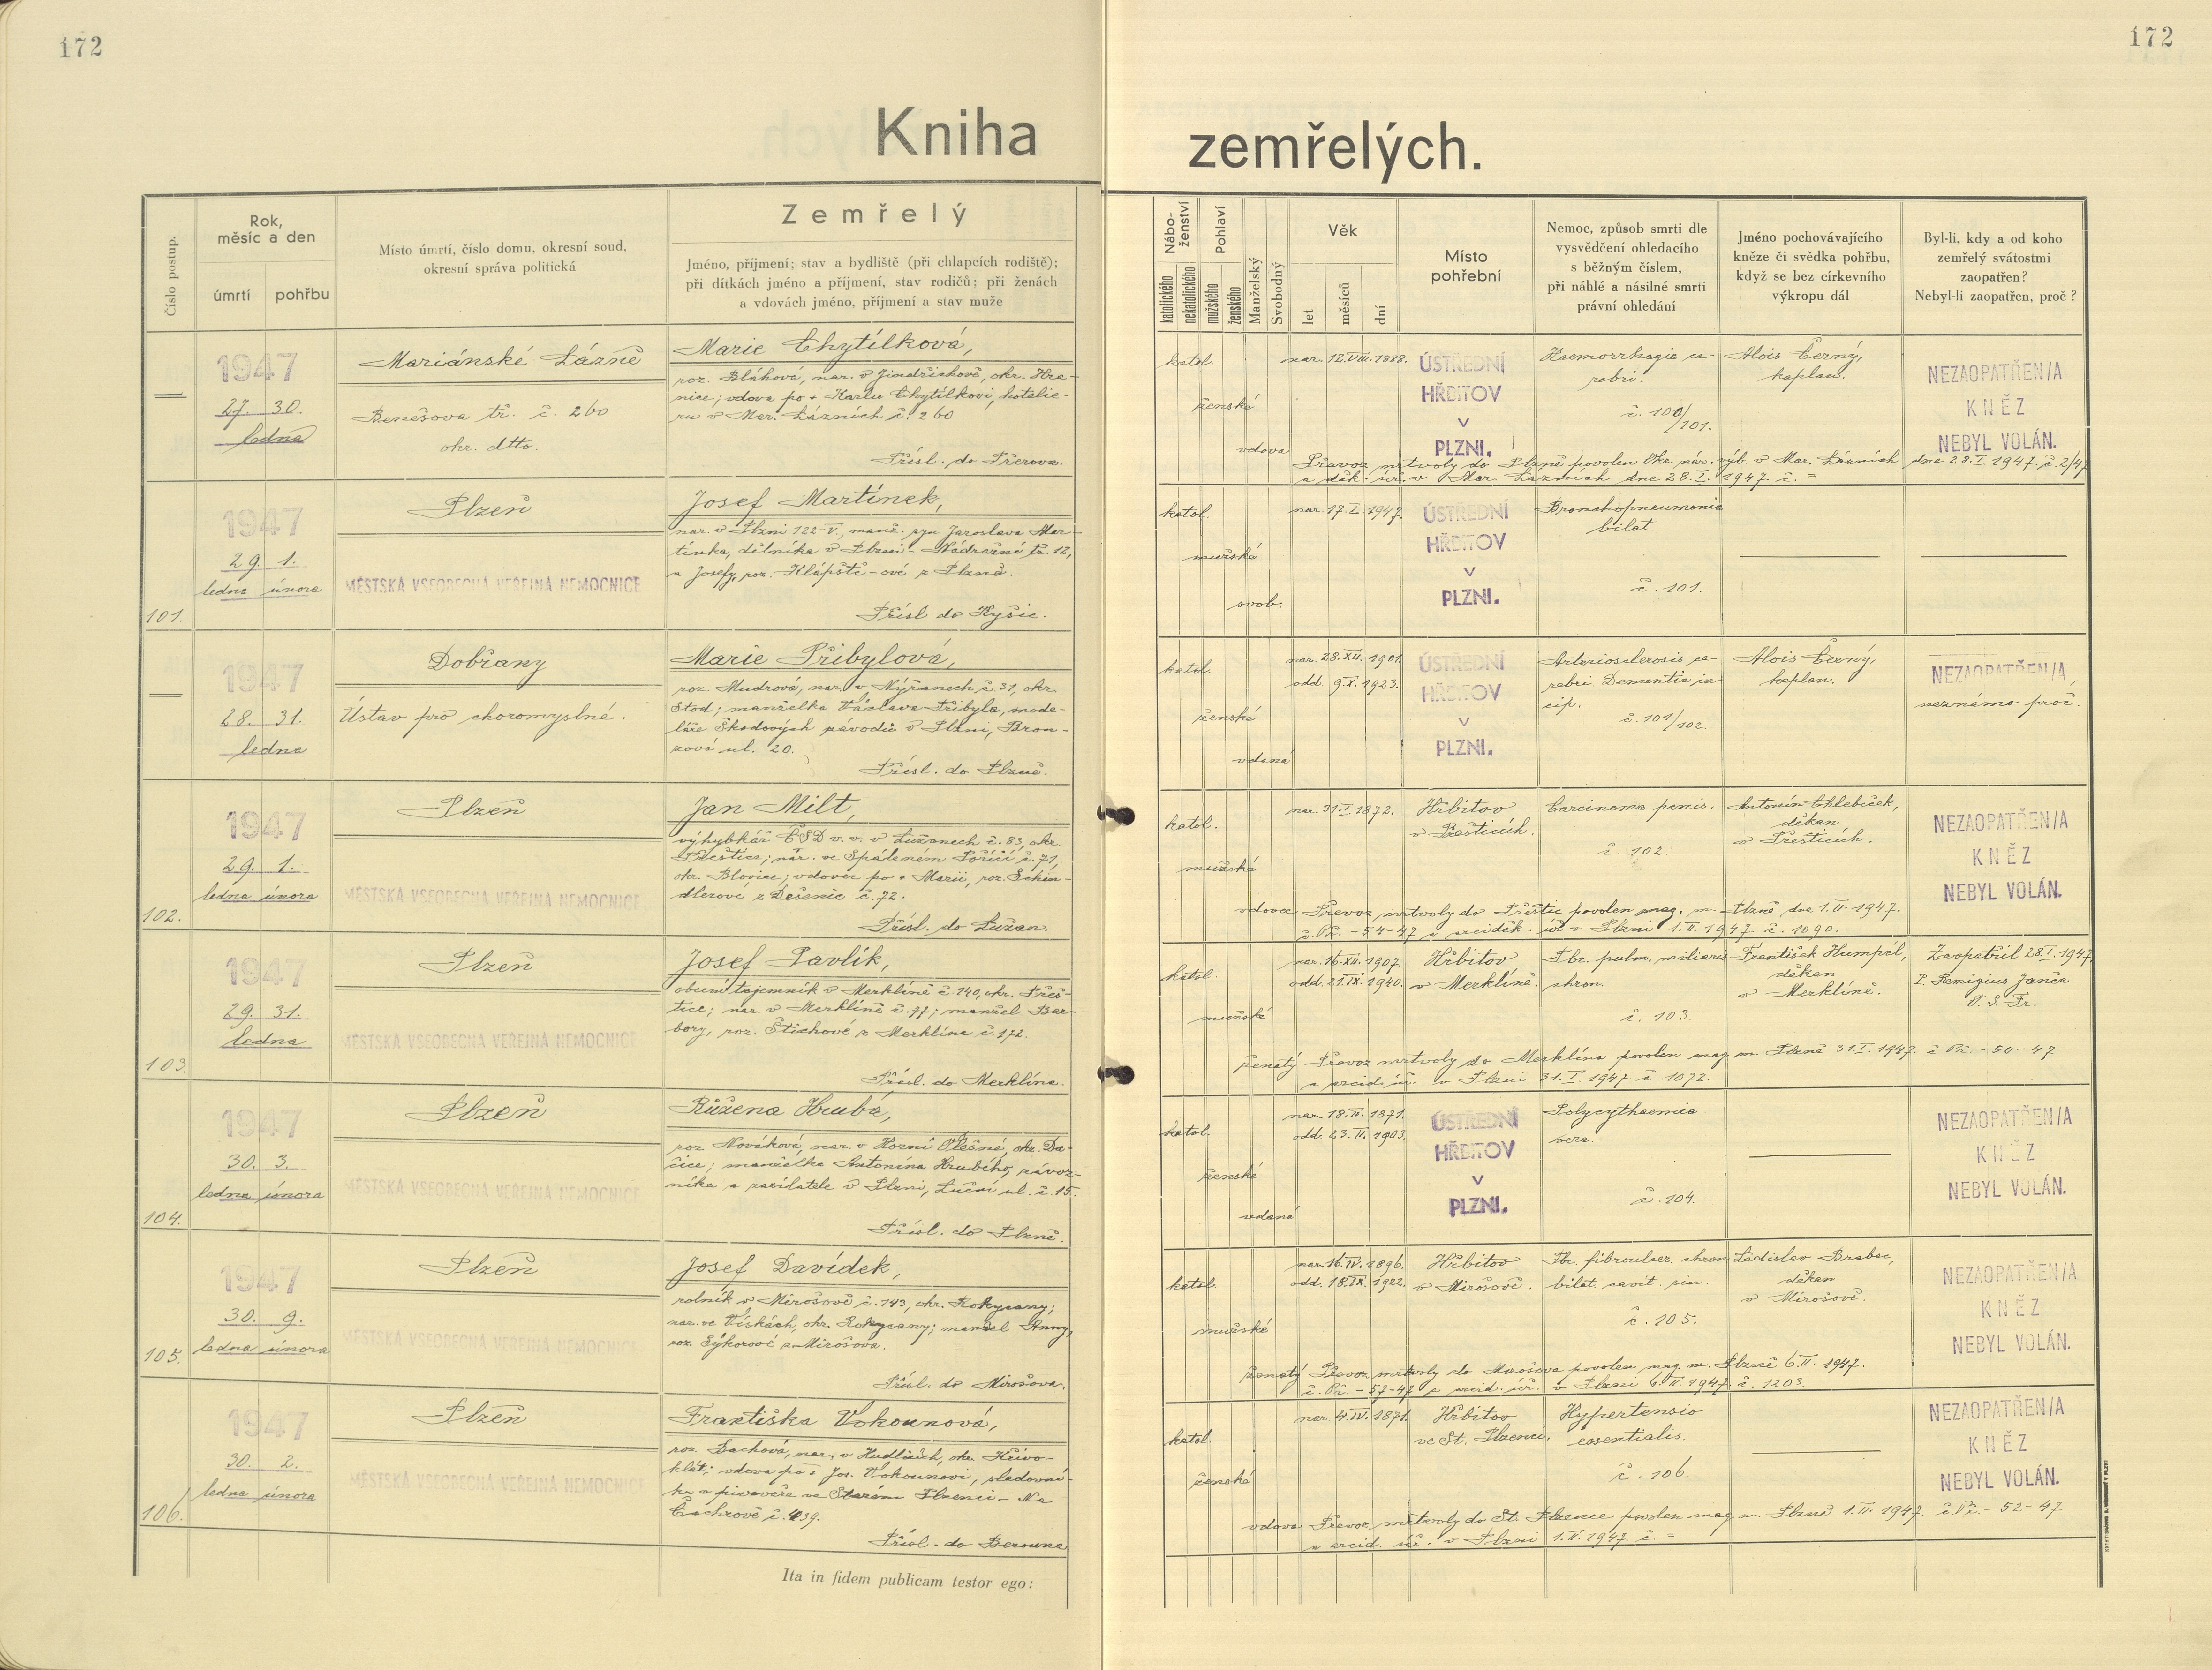 172
172
Kniha
zemřelých.
Číslo postup.
Rok,
měsíc a den
úmrtí
pohřbu
Místo úmrtí, číslo domu, okresní soud,
okresní správa politická
Zemřelý
Jméno, příjmení; stav a bydliště (při chlapcích rodiště);
při dítkách jméno a příjmení, stav rodičů; při ženách
a vdovách jméno, příjmení a stav muže
Nábo-
ženství
katolického
nekatolického
Pohlaví
mužského
ženského
Manželský
Svobodný
Věk
let
měsíců
dní
Místo
pohřební
Nemoc, způsob smrti dle
vysvědčení ohledacího
s běžným číslem,
při náhlé a násilné smrti
právní ohledání
Jméno pochovávajícího
kněze či svědka pohřbu,
když se bez církevního
výkropu dál
Byl-li, kdy a od koho
zemřelý svátostmi
zaopatřen?
Nebyl-li zaopatřen, proč?
1947
27. 30.
ledna
Mariánské Lázně
Benešova tř. č. 260
okr. dtto.
Marie Chytílková,
roz. Bláhová, nar. v Jindřichově, okr. Hra-
nice; vdova po + Karlu Chytílkovi, hotelie-
ru v Mar. Lázních č. 260
Přísl. do Přerova.
katol.
ženské
vdova
nar. 12.VIII.1888.
ÚSTŘEDNÍ
HŘBITOV
V
PLZNI.
Haemorrhagia ce-
rebri.
č. 100/101.
Alois Černý,
kaplan.
NEZAOPATŘEN/A
KNĚZ
NEBYL VOLÁN.
Převoz mrtvoly do Plzně povolen Okr. nár. výb. v Mar. Lázních dne 28.I.1947. č. 2/47
a děk. úř. v Mar. Lázních dne 28.I.1947. č. =
101.
1947
29. 1.
ledna února
Plzeň
MĚSTSKÁ VŠEOBECNÁ VEŘEJNÁ NEMOCNICE
Josef Martínek,
nar. v Plzni 122-V., manž. syn Jaroslava Mar-
tínka, dělníka v Plzni - Nádražní tř. 12,
a Josefy, roz. Hlápště-ové z Plzně.
Přísl do Kyšic.
katol.
mužské
svob.
nar. 17.I.1947.
ÚSTŘEDNÍ
HŘBITOV
V
PLZNI.
Bronchopneumonia
bilat.
č. 101.
1947
28. 31.
ledna
Dobřany
Ústav pro choromyslné.
Marie Přibylová,
roz. Mudrová, nar. v Nýřanech č. 31, okr.
Stod; manželka Václava Přibyla, mode-
láře Škodových závodů v Plzni, Bron-
zová ul. 20.
Přísl. do Plzně.
katol.
ženské
vdaná
nar. 28.XII.1901.
odd. 9.X.1923.
ÚSTŘEDNÍ
HŘBITOV
V
PLZNI.
Arteriosclerosis ce-
rebri. Dementia in-
cip.
č. 101/102.
Alois Černý,
kaplan.
NEZAOPATŘEN/A,
neznámo proč.
102.
1947
29. 1.
ledna února
Plzeň
MĚSTSKÁ VŠEOBECNÁ VEŘEJNÁ NEMOCNICE
Jan Milt,
výhybkář ČSD v. v. v Lužanech č. 83, okr.
Přeštice; nar. ve Spáleném Poříčí č. 71,
okr. Blovice; vdovec po + Marii, roz. Schin-
dlerové z Dešenic č. 72.
Přísl. do Lužan.
katol.
mužské
vdovec
nar. 31.I.1872.
Hřbitov
v Přešticích.
Carcinoma penis.
č. 102.
Antonín Chlebeček,
děkan
v Přešticích.
NEZAOPATŘEN/A
KNĚZ
NEBYL VOLÁN.
Převoz mrtvoly do Přeštic povolen mag. m. Plzně dne 1.II.1947.
č. Př. - 54-47 a arciděk. úř. v Plzni 1.II.1947. č. 1090.
103.
1947
29. 31.
ledna
Plzeň
MĚSTSKÁ VŠEOBECNÁ VEŘEJNÁ NEMOCNICE
Josef Pavlík,
obecní tajemník v Merklíně č. 140, okr. Přeš-
tice; nar. v Merklíně č. 77; manžel Bar-
bory, roz. Štichové z Merklína č. 172.
Přísl. do Merklína.
katol.
mužské
ženatý
nar. 16.XII.1907.
odd. 21.IX.1940.
Hřbitov
v Merklíně.
Tbc. pulm. miliaris
chron.
č. 103.
František Humpál,
děkan
v Merklíně.
Zaopatřil 28.I.1947
P. Remigius Janča
O. S. Fr.
Převoz mrtvoly do Merklína povolen mag. m. Plzně 31.I.1947. č Př. - 50-47
a arcid. úř. v Plzni 31.I.1947. č. 1072.
104.
1947
30. 3.
ledna února
Plzeň
MĚSTSKÁ VŠEOBECNÁ VEŘEJNÁ NEMOCNICE
Růžena Hrubá,
roz. Nováková, nar. v Horní Olešné, okr. Da-
čice; manželka Antonína Hrubého, závoz-
níka a zasilatele v Plzni, Luční ul. č. 15.
Přísl. do Plzně.
katol.
ženské
vdaná
nar. 18.II.1871.
odd. 23.II.1903.
ÚSTŘEDNÍ
HŘBITOV
V
PLZNI.
Polycythaemia
vera.
č. 104.
NEZAOPATŘEN/A
KNĚZ
NEBYL VOLÁN.
105.
1947
30. 9.
ledna února
Plzeň
MĚSTSKÁ VŠEOBECNÁ VEŘEJNÁ NEMOCNICE
Josef Davídek,
rolník v Mirošově č. 143, okr. Rokycany;
nar. ve Vískách, okr. Rokycany; manžel Anny,
roz. Sýkorové z Mirošova.
Přísl. do Mirošova.
katol.
mužské
ženatý
nar. 16.IV.1896.
odd. 18.IX.1922.
Hřbitov
v Mirošově.
Tbc. fibroulcer. chron.
bilat. cavit. sin.
č. 105.
Ladislav Brabec,
děkan
v Mirošově.
NEZAOPATŘEN/A
KNĚZ
NEBYL VOLÁN.
Převoz mrtvoly do Mirošova povolen mag. m. Plzně 6.II.1947.
č. Př. - 57-47 a arcid. úř. v Plzni 6.II.1947. č. 1203.
106.
1947
30. 2.
ledna února
Plzeň
MĚSTSKÁ VŠEOBECNÁ VEŘEJNÁ NEMOCNICE
Františka Vokounová,
roz. Bachová, nar. v Hudlicích, okr. Křivo-
klát; vdova po + Jos. Vokounovi, sladovní-
ku v pivováře ve Starém Plzenci - Na
Čachrově č. 439.
Přísl. do Berouna
katol.
ženské
vdova
nar. 4.IV.1871.
Hřbitov
ve St. Plzenci.
Hypertensio
essentialis.
č. 106.
NEZAOPATŘEN/A
KNĚZ
NEBYL VOLÁN.
Převoz mrtvoly do St. Plzence povolen mag. m. Plzně 1.II.1947. č Př. - 52-47
a arcid. úř. v Plzni 1.II.1947. č. =
Ita in fidem publicam testor ego: